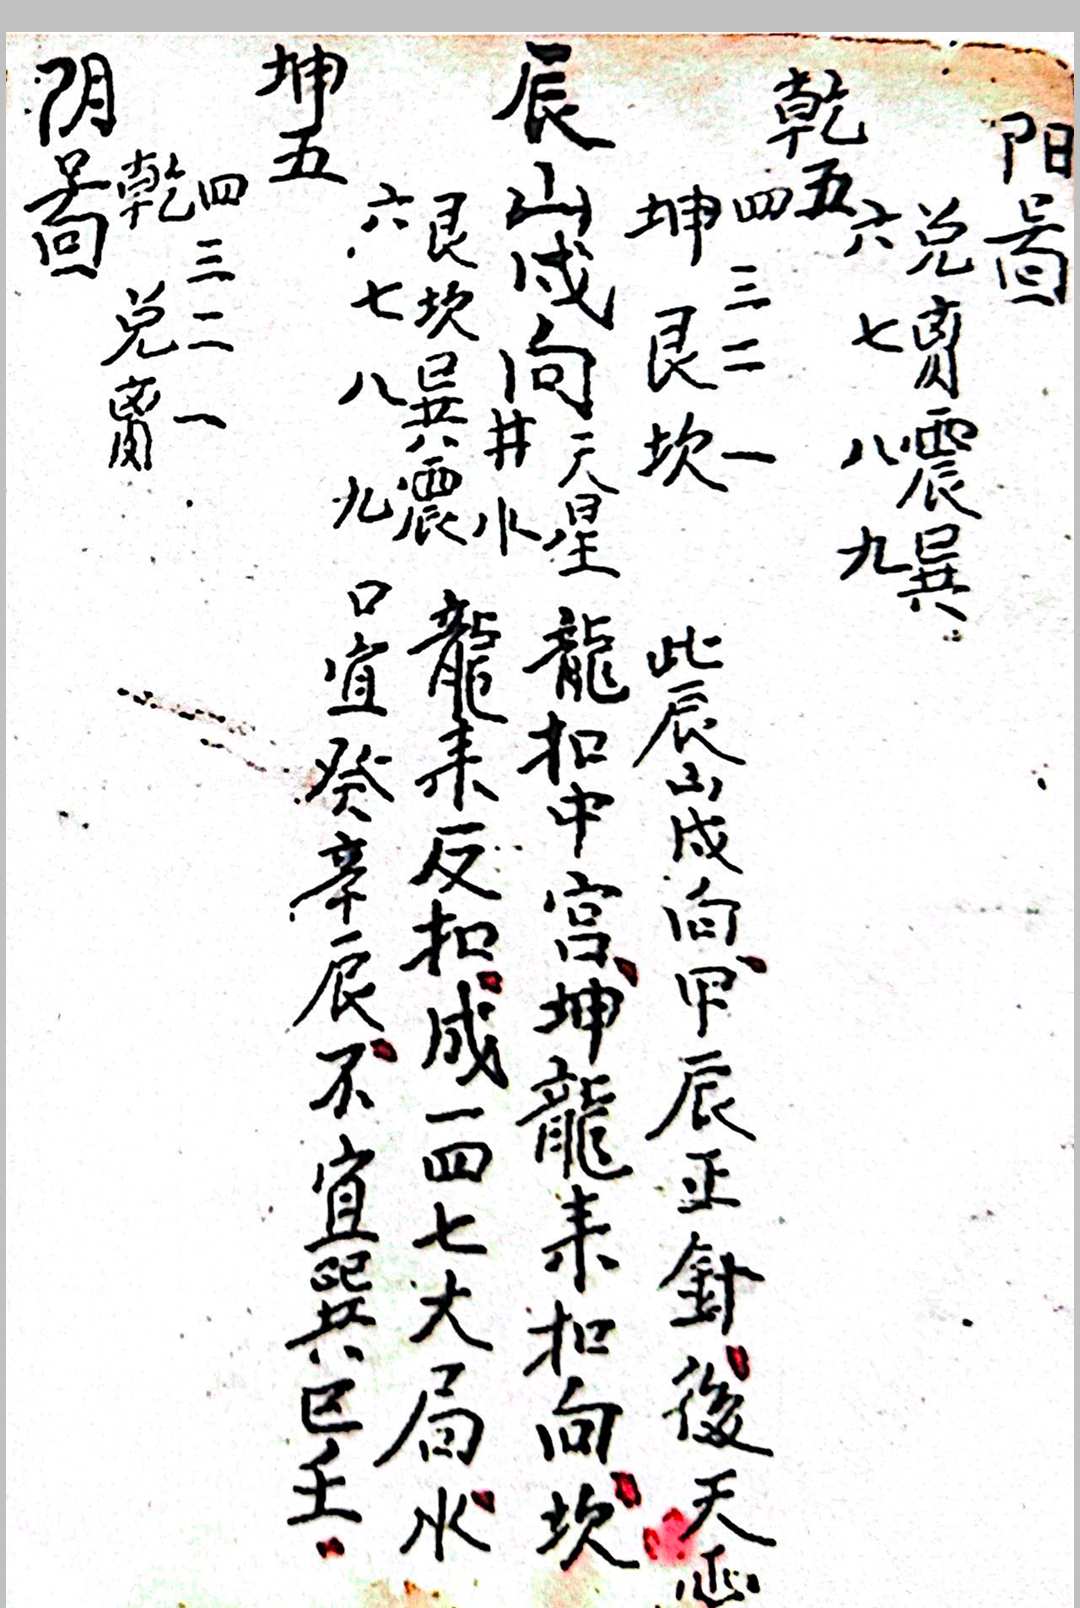 阳啚
兑离震巽
六七八九
乾五
四三二一
坤艮坎
辰山戍向天星
井水
艮坎巽震
六七八九
坤五
四三二一
乾兑离
阴啚
此辰山戍向甲辰正針後天
龍扣中宫坤龍来扣向坎
龍来反扣成一四七大局水
口宜癸辛辰不宜巽巳壬